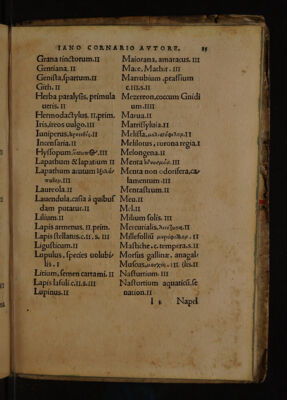 IANO CORNARIO AVTORE. 
Grana tinctorum.II
Gentiana. II
Genista,spartum.II
Gith. II
Herba paralysis, primula
ueris. II
Hermodactylus. II.prim.
Iris,ireos uulgo.III
Iuniperus, II
Incensaria.II
Hyssopum III
Lapathum & lapatium II
Lapathum acutum
III
Laureola.II
Lauendula,casia à quibus
dam putatur.II
Lilium.II
Lapis armenus, II.prim.
Lapis stellatus.c.II.s.III
Ligusticum.II
Lupulus, species uolubi-
lis. I
Litium,semen cartami.II
Lapis lasuli c.II.s.III
Lupinus.II
Maiorana, amaracus. III
Mace, Machir. III
Marrubium,prassium
c.III.s.II
Mezereon,coccum Gnidi
um.IIII
Marua.II
Matrissylaia.II
Melissa, II
Melilotus, corona regia.I
Melongena.II
Menta III
Menta non odorifera,ca-
lamentum.III
Mentastrum.II
Meu.II
Mel.II
Milium solis. III
Mercurialis, II
Millefolium II
Mastiche.c.tempera.s.II
Morsus gallinæ, anagal-
Muscus, III lis.II
Nasturtium. III
Nastortium aquaticū,se
nation.II
Napel